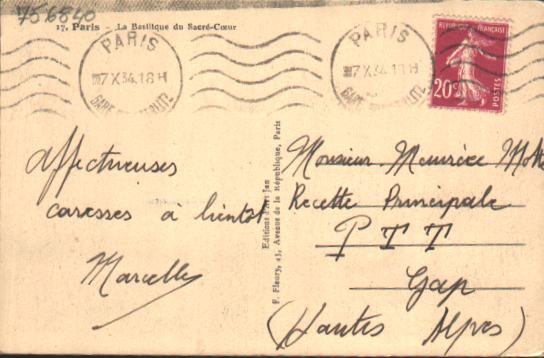 756840
17. Paris - La Basilique du Sacré-Cœur
PARIS
7 X 34. 18 H
GARE
PARIS
7 X 34
GARE
REPUBLIQUE FRANÇAISE
20c
POSTES
Affectueuses
caresses à bientôt
Marcelle
Editions d'Art Jan
F. Fleury, 43, Avenue de la République, Paris
Monsieur Maurice
Recette Principale
P T T
Gap
(Hautes Alpes)